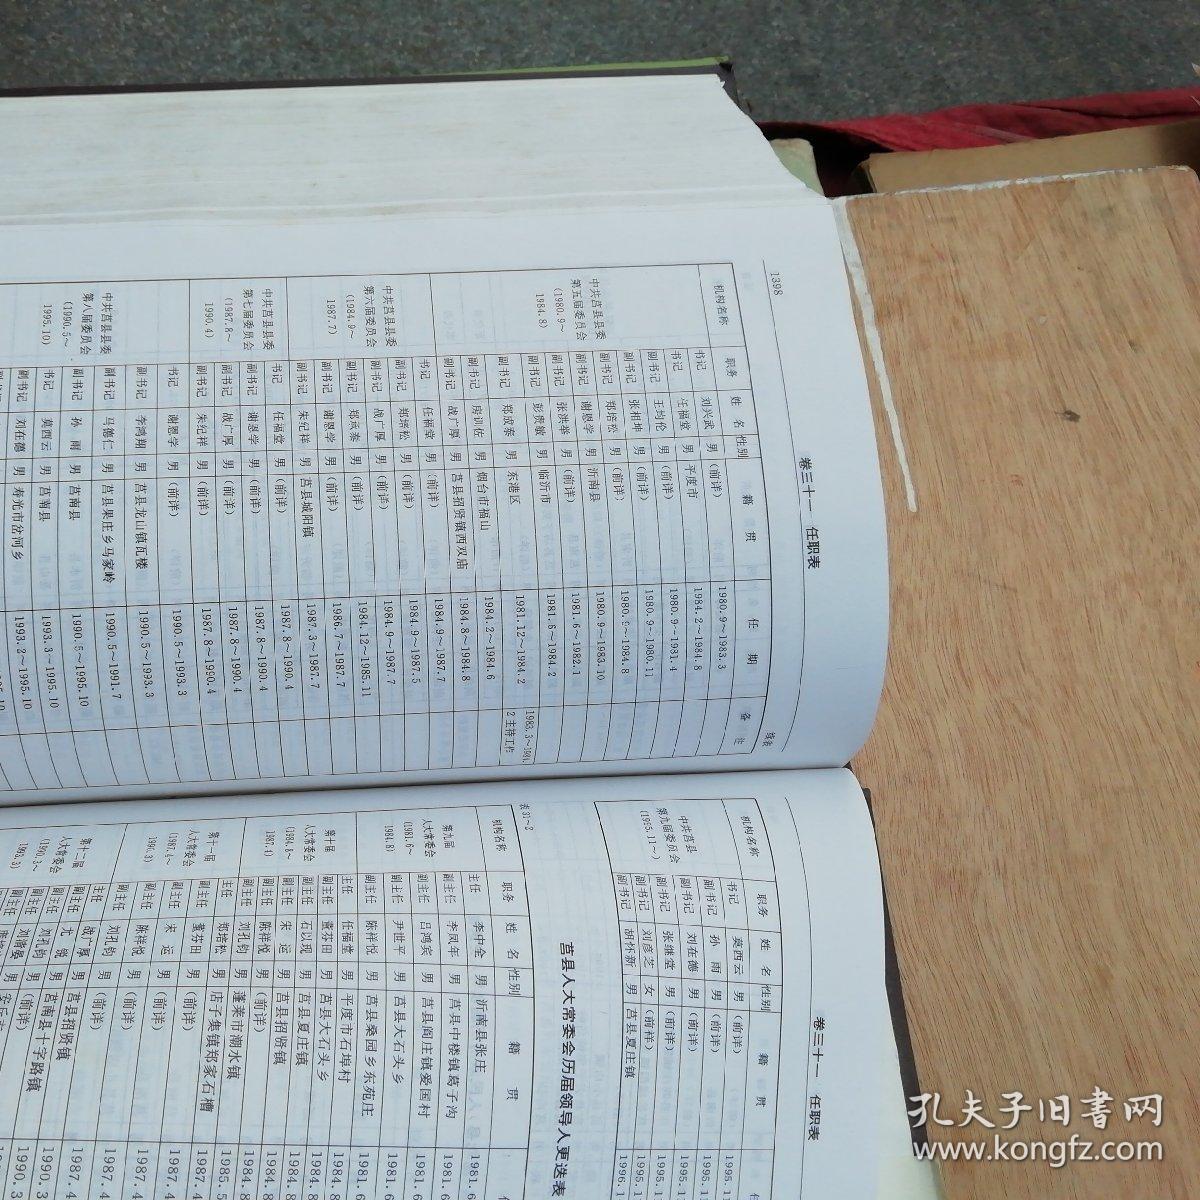 1398
卷三十一 任职表
续表
机构名称 职务 姓名 性别 籍贯 任期 备注
中共莒县县委
第五届委员会
(1980.9~
1984.8)
书记 刘兴武 男 (前详) 1980.9~1983.3
书记 任福堂 男 平度市 1984.2~1984.8
副书记 王均伦 男 (前详) 1980.9~1981.4
副书记 张相坤 男 (前详) 1980.9~1980.11
副书记 郑培松 男 (前详) 1980.9~1984.8
副书记 谢恩学 男 沂南县 1980.9~1983.10
副书记 张洪举 男 (前详) 1981.6~1982.1
副书记 彭贵敏 男 临沂市 1981.6~1984.2
副书记 郑成泰 男 东港区 1981.12~1984.2 1983.3~1984.
2主持工作
副书记 房训佐 男 烟台市福山 1984.2~1984.6
副书记 战广厚 男 莒县招贤镇西双庙 1984.8~1984.8
中共莒县县委
第六届委员会
(1984.9~
1987.7)
书记 任福堂 男 (前详) 1984.9~1987.7
副书记 郑培松 男 (前详) 1984.9~1987.5
副书记 战广厚 男 (前详) 1984.9~1987.7
副书记 郑成泰 男 (前详) 1984.12~1985.11
副书记 谢恩学 男 (前详) 1986.7~1987.7
副书记 朱纪祥 男 莒县城阳镇 1987.3~1987.7
中共莒县县委
第七届委员会
(1987.8~
1990.4)
书记 任福堂 男 (前详) 1987.8~1990.4
副书记 谢恩学 男 (前详) 1987.8~1990.4
副书记 战广厚 男 (前详) 1987.8~1990.4
副书记 朱纪祥 男 (前详) 1987.8~1990.4
中共莒县县委
第八届委员会
(1990.5~
1995.10)
书记 谢恩学 男 (前详) 1990.5~1993.3
副书记 李鸿翔 男 莒县龙山镇瓦楼 1990.5~1993.3
副书记 马德仁 男 莒县果庄乡马家岭 1990.5~1991.7
副书记 孙雨 男 莒南县 1990.5~1995.10
书记 莫西云 男 莒南县 1993.3~1995.10
副书记 刘在德 男 寿光市岔河乡 1993.2~1995.10
卷三十一 任职表
机构名称 职务 姓名 性别 籍贯 任
中共莒县
第九届委员会
(1995.11~)
书记 莫西云 男 (前详) 1995.1
副书记 孙雨 男 (前详) 1995.1
副书记 刘在德 男 (前详) 1995.1
副书记 张继堂 男 (前详) 1995.1
副书记 刘彦芝 女 (前祥) 1995.1
副书记 胡怀新 男 莒县夏庄镇 1996.1
表31-3
莒县人大常委会历届领导人更迭表
机构名称 职务 姓名 性别 籍贯 任
第九届
人大常委会
(1981.6~
1984.8)
主任 李中全 男 沂南县张庄 1981.6
副主任 李凤年 男 莒县中楼镇葛子沟 1981.6
副主任 吕鸿宾 男 莒县阎庄镇爱国村 1981.6
副主任 尹世平 男 莒县大石头乡 1981.6
副主任 陈祥悦 男 莒县桑园乡东苑庄 1981.6
第十届
人大常委会
(1984.8~
1987.4)
主任 任福堂 男 平度市石埠村 1984.8
副主任 董芬田 男 莒县大石头乡 1984.8
副主任 石以现 男 莒县夏庄镇 1984.8
副主任 宋运 男 莒县招贤镇 1984.8
副主任 陈祥悦 男 (前详) 1984.8
副主任 刘孔钧 男 蓬莱市潮水镇 1985.5
第十一届
人大常委会
(1987.4~
1990.3)
主任 郑培松 男 店子集镇郑家石槽 1987.4
副主任 董芬田 男 (前详) 1987.4
副主任 宋运 男 (前详) 1987.4
副主任 陈祥悦 男 (前详) 1987.4
副主任 刘孔钧 男 (前详) 1987.4
第十二届
人大常委会
(1990.3~
1993.3)
主任 战广厚 男 莒县招贤镇 1990.3
副主任 尤锐 男 莒南县十字路镇 1990.3
副主任 刘孔钧 男 (前详)
孔夫子旧书网
www.kongfz.com